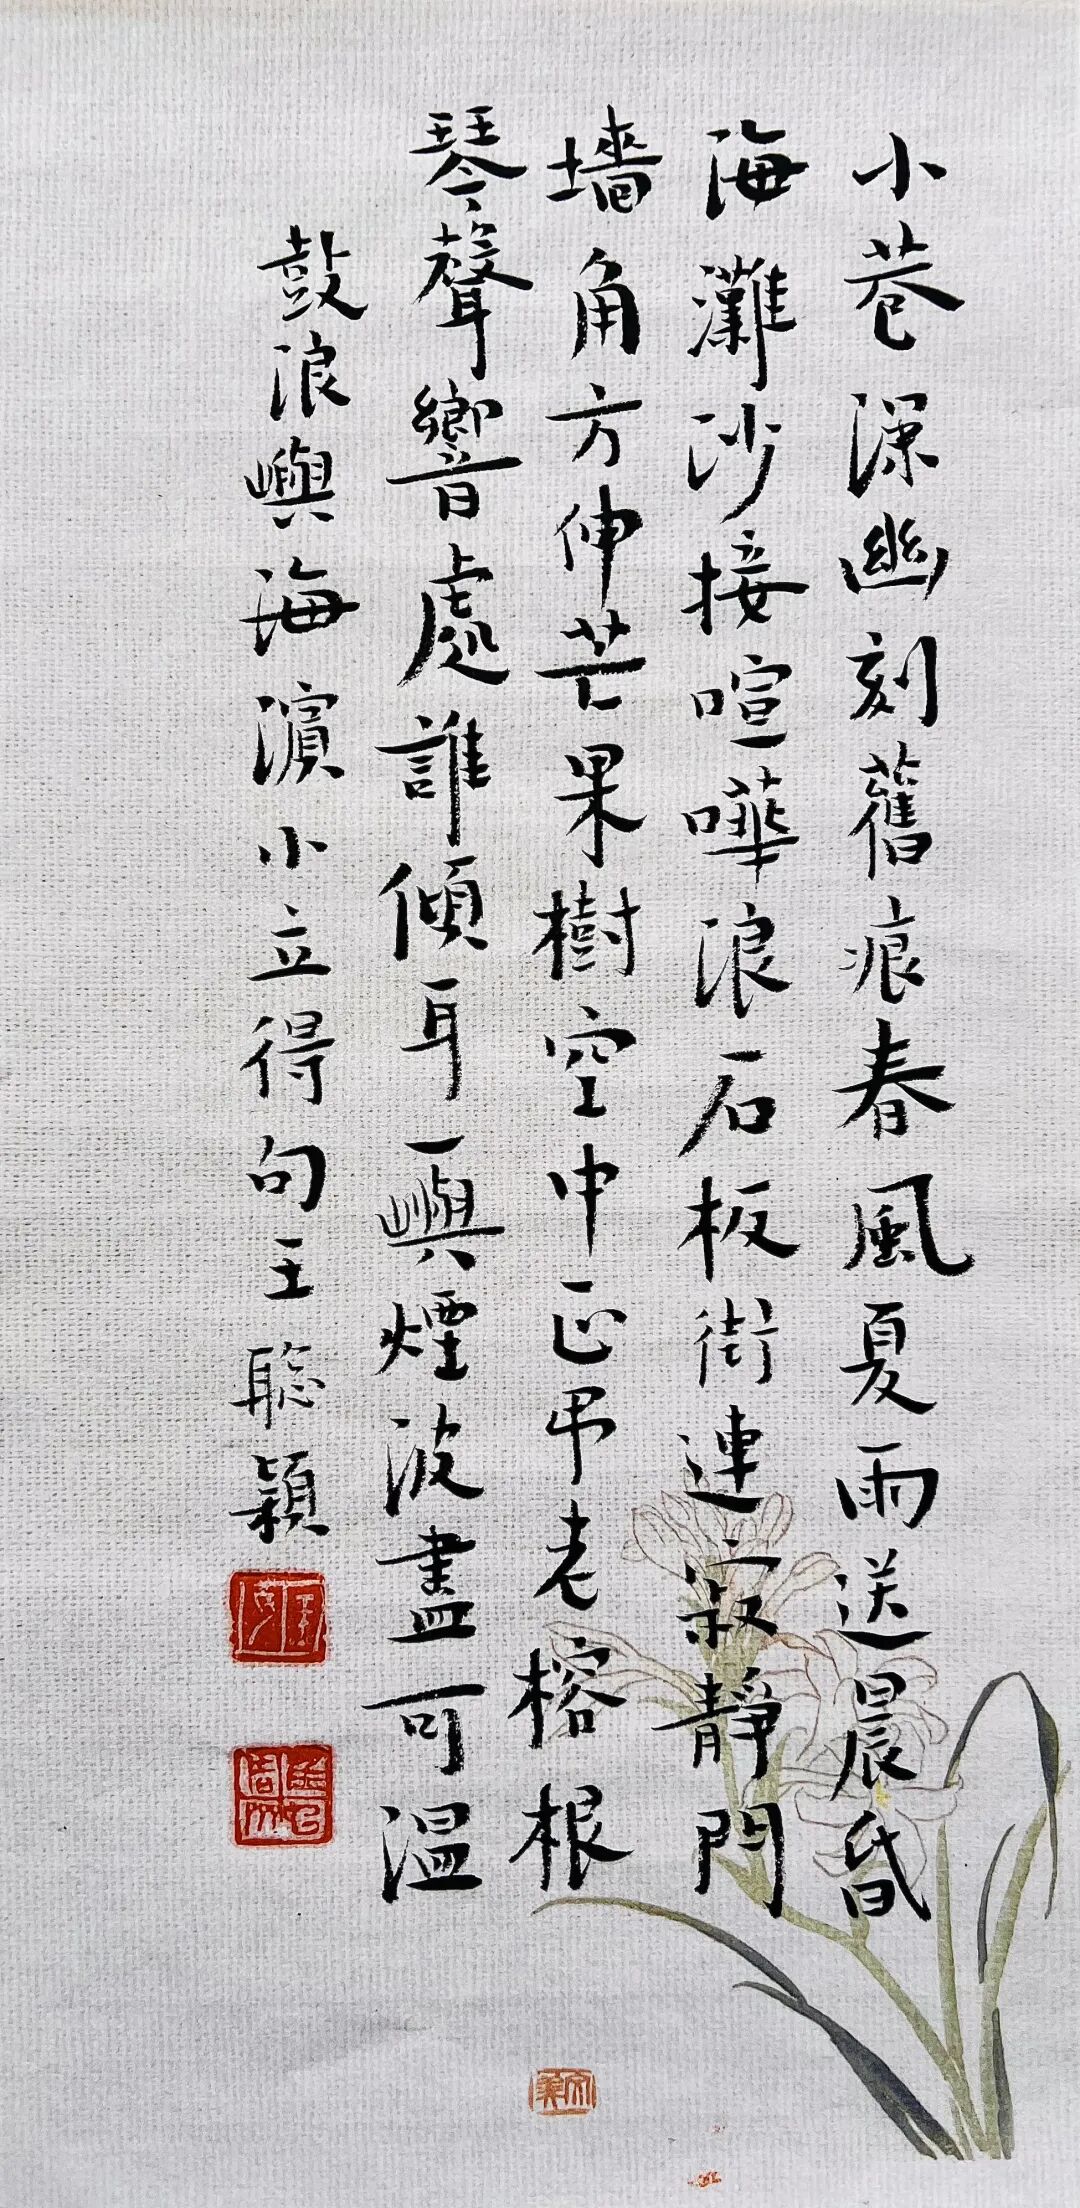 小巷深幽刻舊痕春風夏雨送晨昏
海灘沙接喧嘩浪石板街連寂靜門
墻角方伸芒果樹空中正吊老榕根
琴聲響處誰傾耳一嶼煙波盡可溫
鼓浪嶼海濱小立得句王聰穎